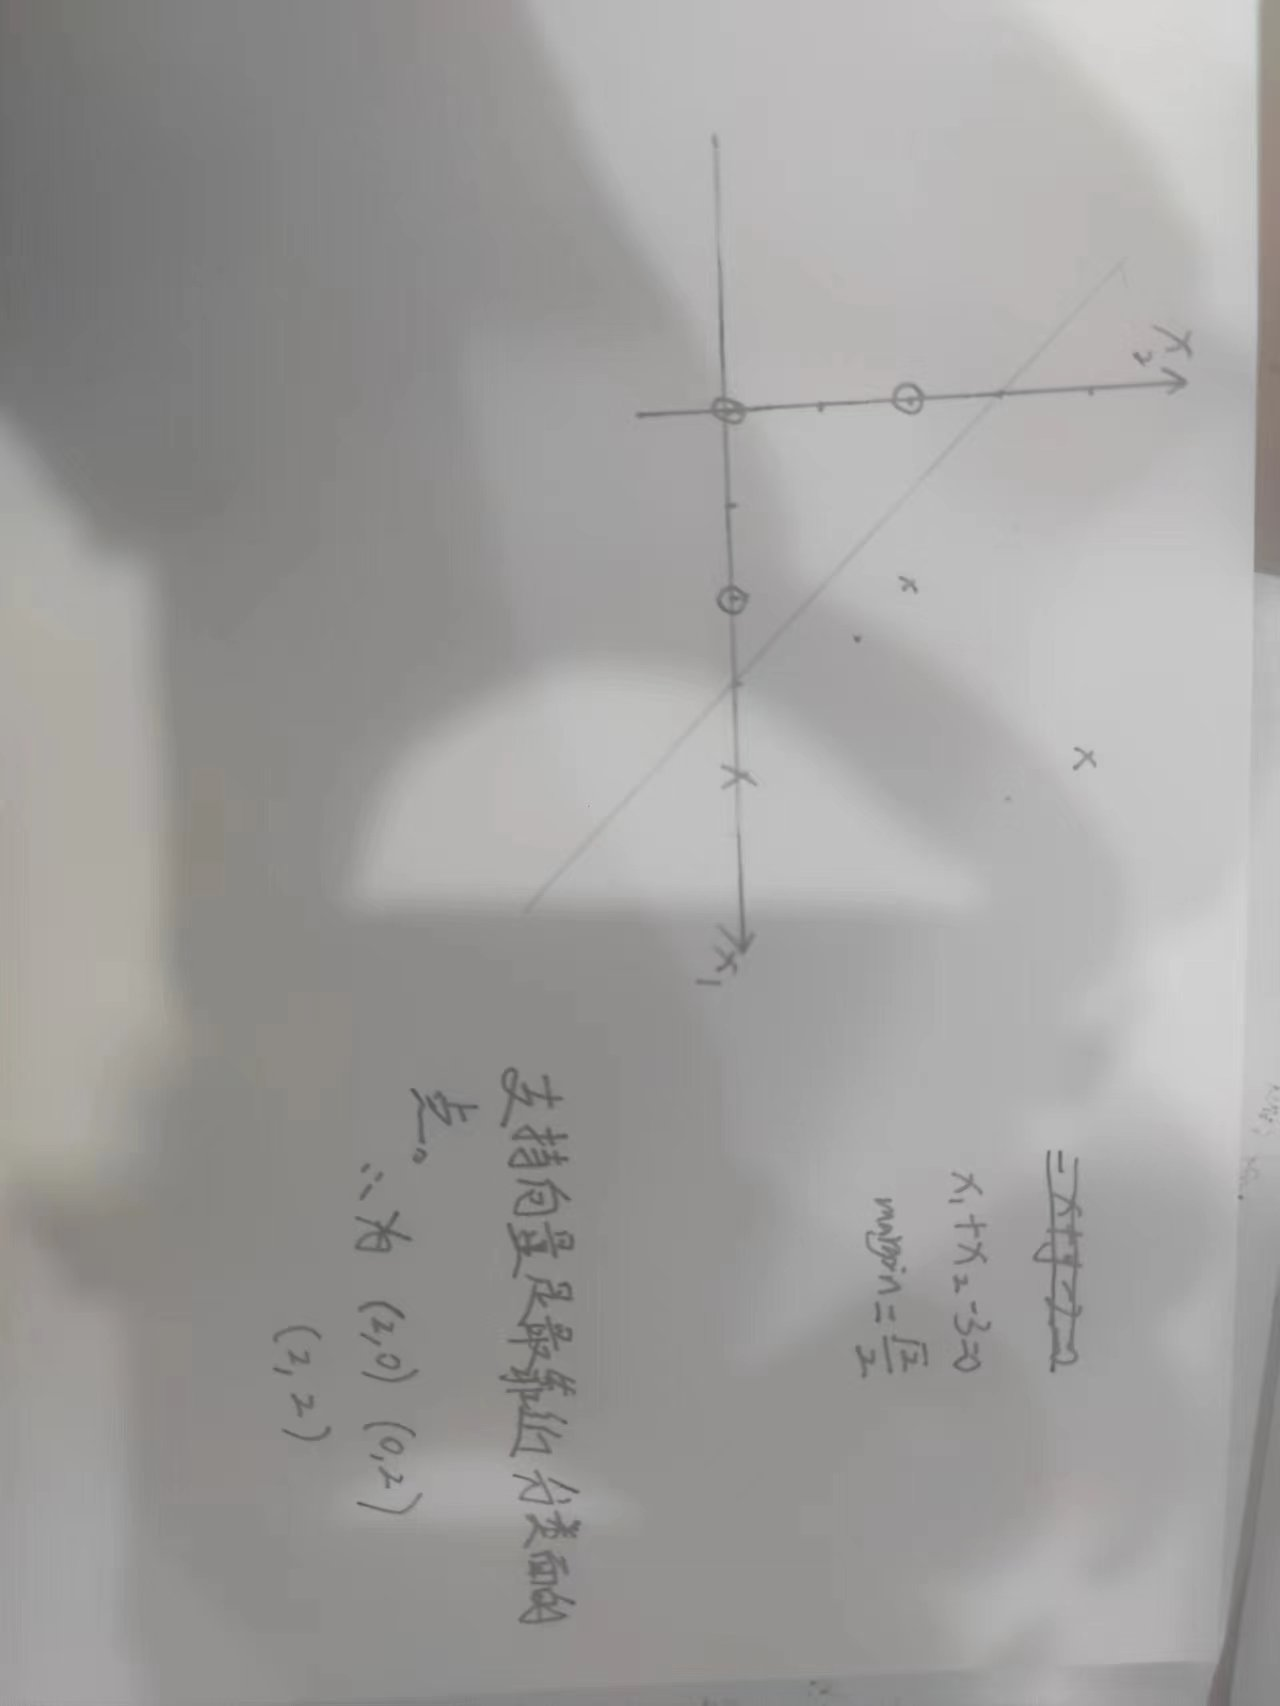 x₂
x₁
= x+y-3=0
x₁+x₂-3=0
margin = √2/2
支持向量是最靠近分类面的
点。
∴为 (2,0) (0,2)
(2,2)